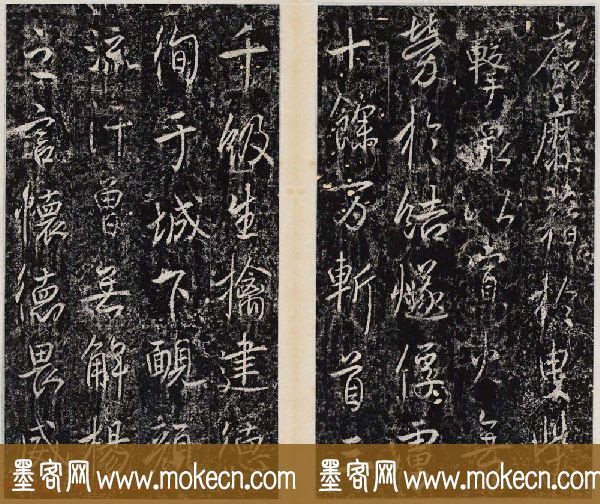 塵靡藉於曳柴
擊衆以寡火無
勞於結燧僵虜
十餘万斬首
千級生擒建德
徇于城下靦顔
流汗曾無解楊
之言懷德畏威
墨客网 www.mokecn.com
墨客网 www.mokecn.com